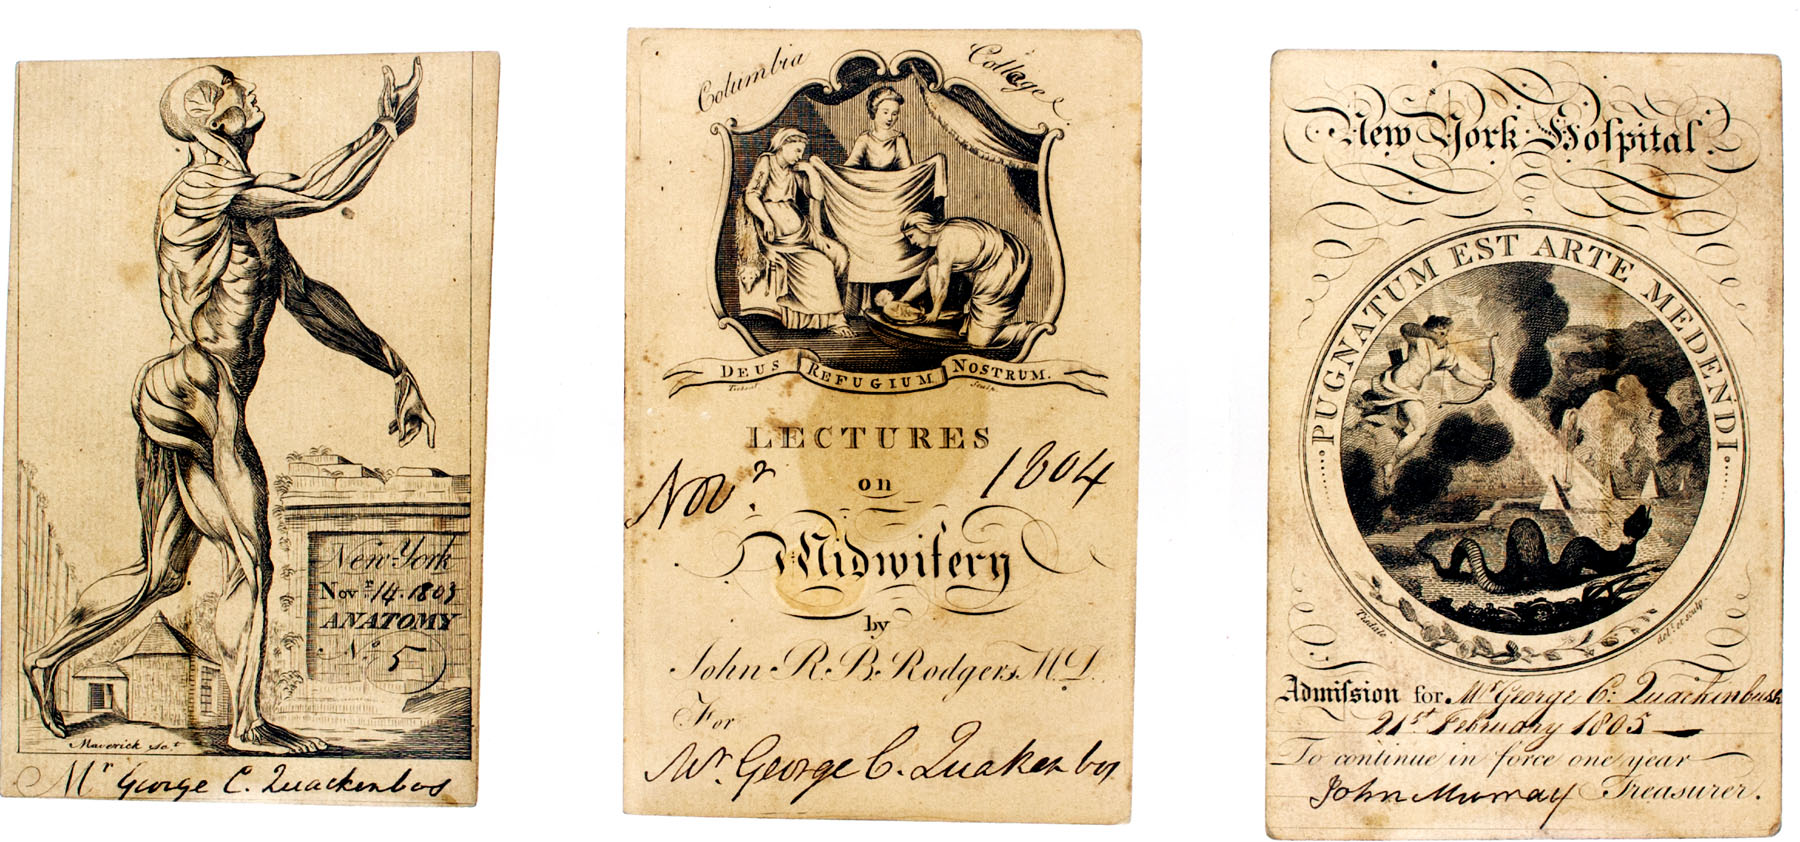 New York
Novr. 14. 1803
ANATOMY
No. 5
Maverick Sct.
Mr George C. Quackenbos
Columbia College
DEUS REFUGIUM NOSTRUM.
Tiebout Sculp.
LECTURES
Novr. 1804
on
Midwifery
by
John R. B. Rodgers M.D.
For
Mr. George C. Quakenbos
New York Hospital.
PUGNATUM EST ARTE MEDENDI
Tisdale delt. et sculp.
Admiſsion for Mr George C. Quackenbush
21st February 1805
To continue in force one year
John Murray Treasurer.